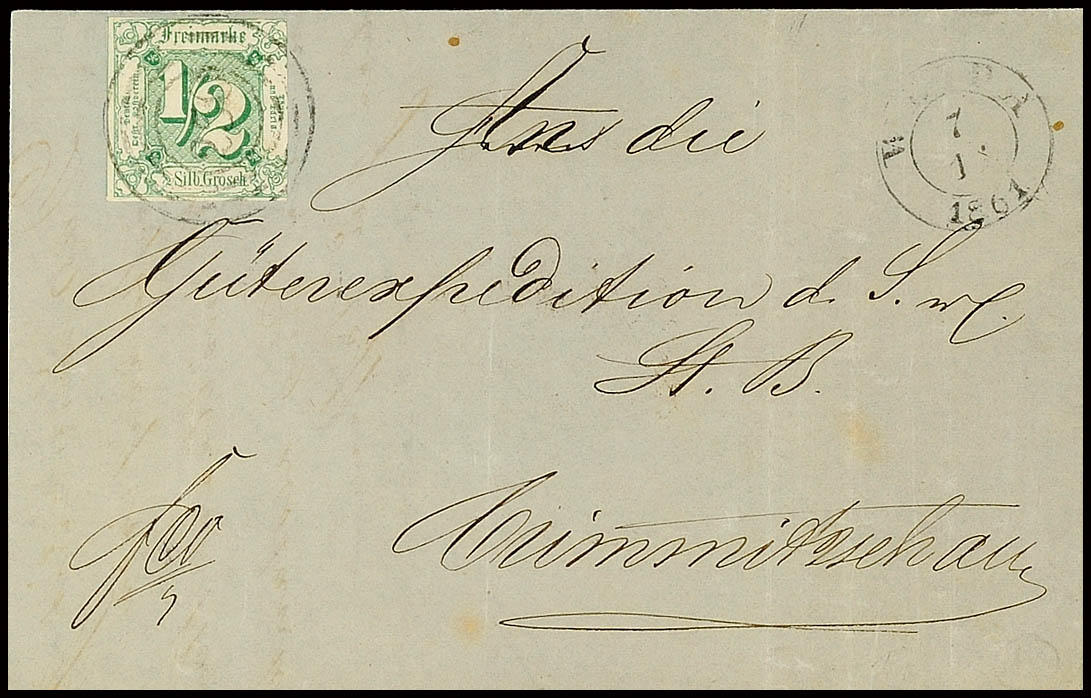 Freimarke
1/2
½ Silb. Grosch.
7
1
1861
An die
Güterexpedition d. S. w.
St. B.
fco
Crimmitzschau